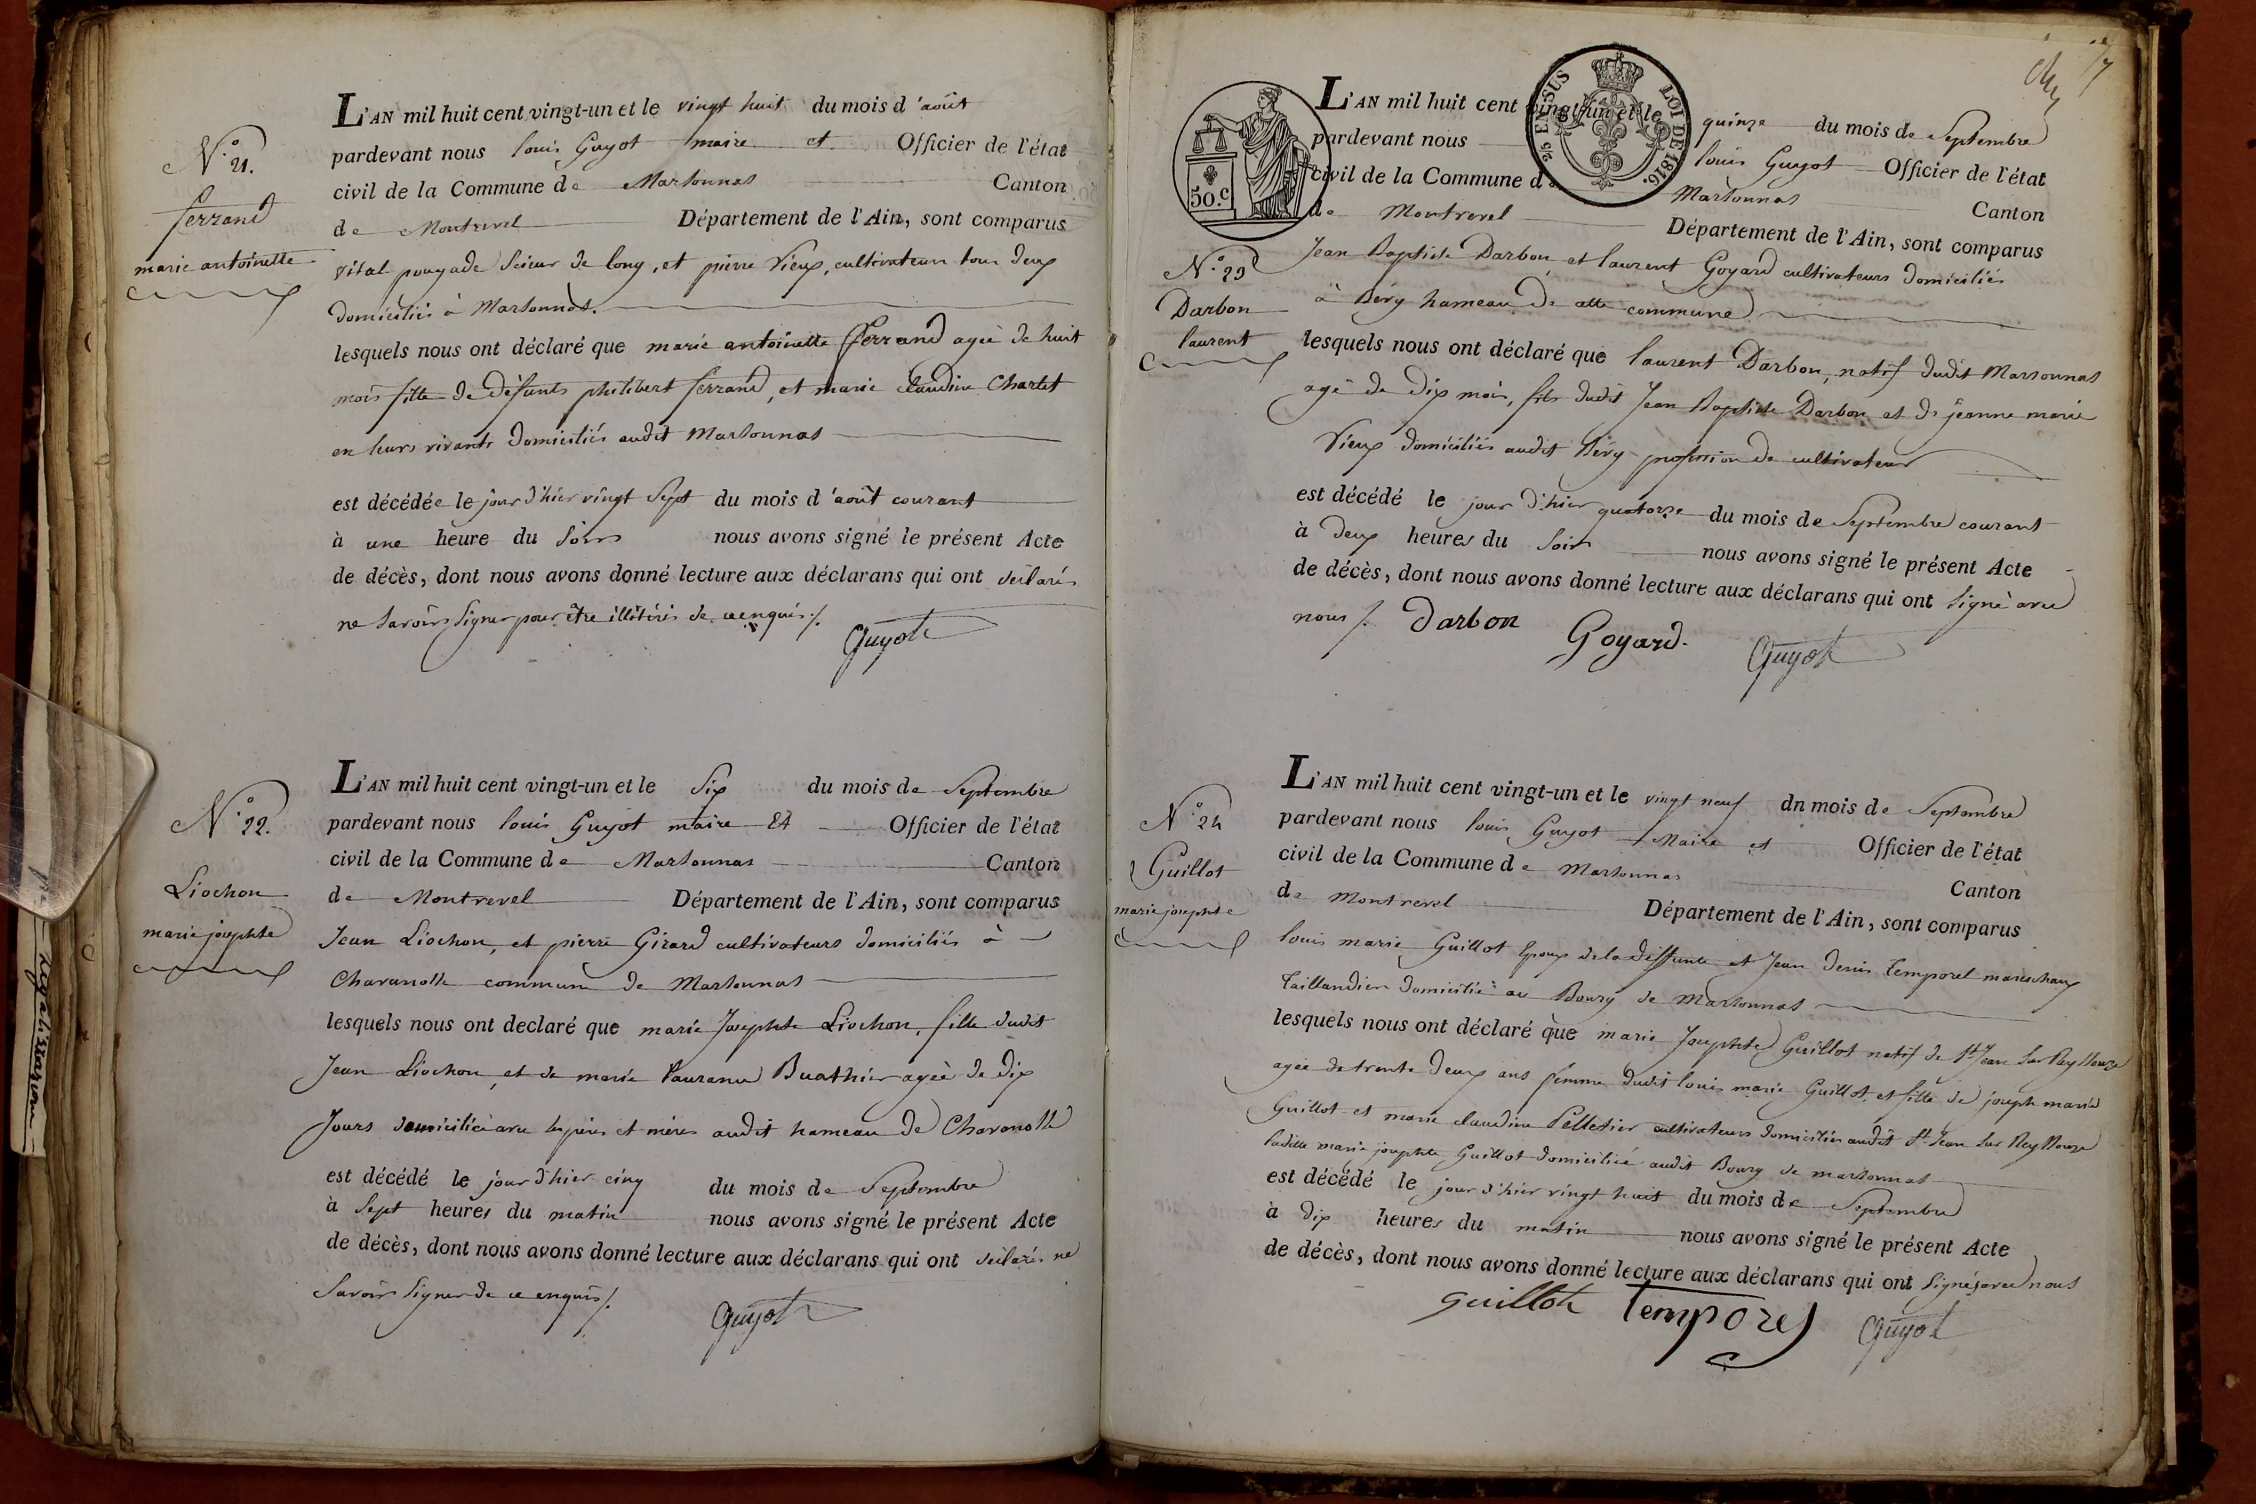 N.° 21.
ferrand
marie antoinette
L'AN mil huit cent vingt-un et le vingt huit du mois d'août
pardevant nous louis Guyot maire et Officier de l'état
civil de la Commune de Marsonnas Canton
de Montrevel Département de l'Ain, sont comparus
vital pougade scieur de long, et pierre Vieux, cultivateur tous deux
domiciliés à Marsonnas.
lesquels nous ont déclaré que marie antoinette ferrand agée de huit
mois fille de défunts philibert ferrand, et marie claudine Charlet
en leurs vivants domiciliés audit Marsonnas
est décédée le jour d'hier vingt Sept du mois d'août courant
à une heure du Soir nous avons signé le présent Acte
de décès, dont nous avons donné lecture aux déclarans qui ont déclarés
ne Savoir Signer pour être illitérés de ce enquis /.
Guyot
N.° 22.
Liochon
marie josephte
L'AN mil huit cent vingt-un et le Six du mois de Septembre
pardevant nous louis Guyot maire Et Officier de l'état
civil de la Commune de Marsonnas Canton
de Montrevel Département de l'Ain, sont comparus
Jean Liochon, et pierre Girard cultivateurs domiciliés à
Chavanolle commune de Marsonnas
lesquels nous ont declaré que marie Josephte Liochon, fille dudit
Jean Liochon, et de marie Buathier agée de dix
Jours domiciliée avec les pères et mères audit hameau de Chavanolle
est décédé le jour d'hier cinq du mois de Septembre
à Sept heures du matin nous avons signé le présent Acte
de décès, dont nous avons donné lecture aux déclarans qui ont déclarés ne
Savoir Signer de ce enquis /.
Guyot
7
50.c
2/5 EN SUS
LOI DE 1816.
N.° 23
Darbon
laurent
L'AN mil huit cent vingt-un et le quinze du mois de Septembre
pardevant nous louis Guyot Officier de l'état
civil de la Commune de Marsonnas Canton
de Montrevel Département de l'Ain, sont comparus
Jean Baptiste Darbon et laurent Goyard cultivateurs domiciliés
à Béry hameau de cette commune
lesquels nous ont déclaré que laurent Darbon, natif dudit Marsonnas
agé de dix mois, fils dudit Jean Baptiste Darbon et de jeanne marie
Vieux domiciliés audit Béry profession de cultivateur
est décédé le jour d'hier quatorze du mois de Septembre courant
à deux heures du Soir nous avons signé le présent Acte
de décès, dont nous avons donné lecture aux déclarans qui ont Signé avec
nous /. Darbon Goyard. Guyot
N.° 24
Guillot
marie josephte
L'AN mil huit cent vingt-un et le vingt neuf dn mois de Septembre
pardevant nous louis Guyot Maire et Officier de l'état
civil de la Commune de Marsonnas Canton
de Montrevel Département de l'Ain, sont comparus
louis marie Guillot Epoux de la deffunte et Jean denis Temporel mareschaux
Taillandier domicilié au Bourg de Marsonnas
lesquels nous ont déclaré que marie Josephte Guillot natif de St Jean Sur Reyssouze
agée de trente deux ans femme dudit louis marie Guillot et fille de joseph marie
Guillot et marie claudine Pelletier cultivateurs domiciliés audit St Jean Sur Reyssouze
ladite marie josephte Guillot domiciliée audit Bourg de marsonnas
est décédé le jour d'hier vingt huit du mois de Septembre
à dix heures du matin nous avons signé le présent Acte
de décès, dont nous avons donné lecture aux déclarans qui ont Signés avec nous
Guillot Temporel Guyot